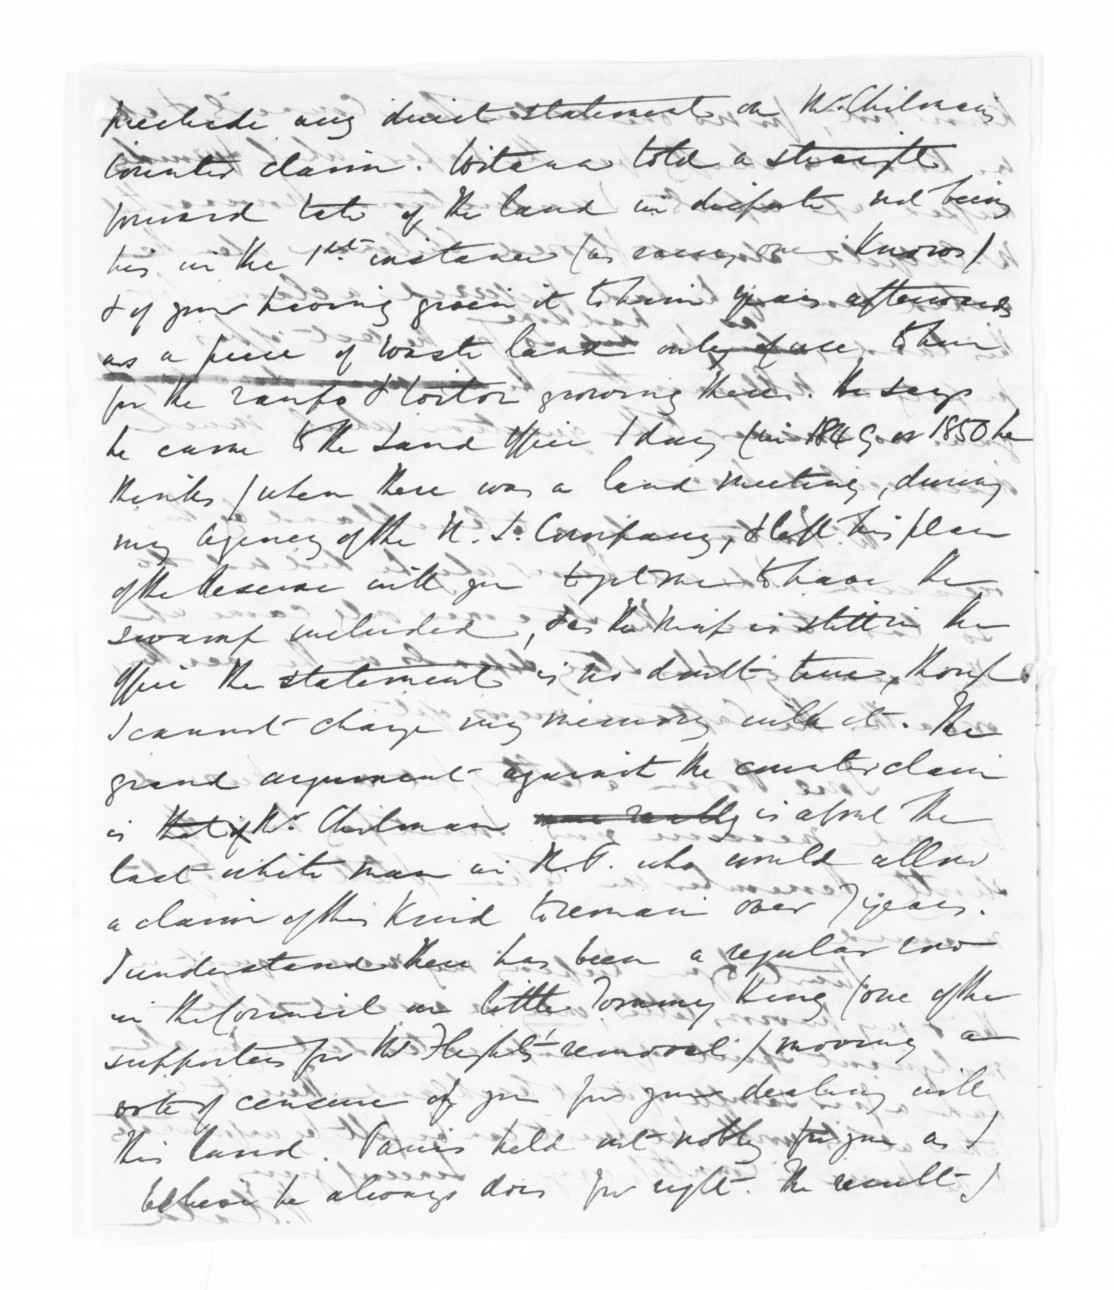 preclude any direct statement on Mr Chilman's
Counter claim. Witana told a straight
forward tale of the land in dispute not being
his in the 1st instance (as every one knows)
& of your having given it to him years afterwards
as a piece of waste land only of use to him
for the raupo & toitoi growing there. He says
he came to the Land Office 1 day (in 1849 or 1850 he
thinks) when there was a land meeting, during
my Agency of the N. Z. Company, & left his plan
of the Reserve with you to get me to have the
swamp included, & as the Map is still in the
Office the statement is no doubt true, though
I cannot charge my memory with it. The
grand argument against the counter claim
is that Mr Chilman is about the
last white man in N.P. who would allow
a claim of this kind to remain over 7 years.
I understand there has been a regular row
in the Council on little Tommy King (one of the
supporters for Mr Flight's removal) moving a
vote of censure of you for your dealing with
this land. Parris held out nobly for you as I
believe he always does for right. The result I